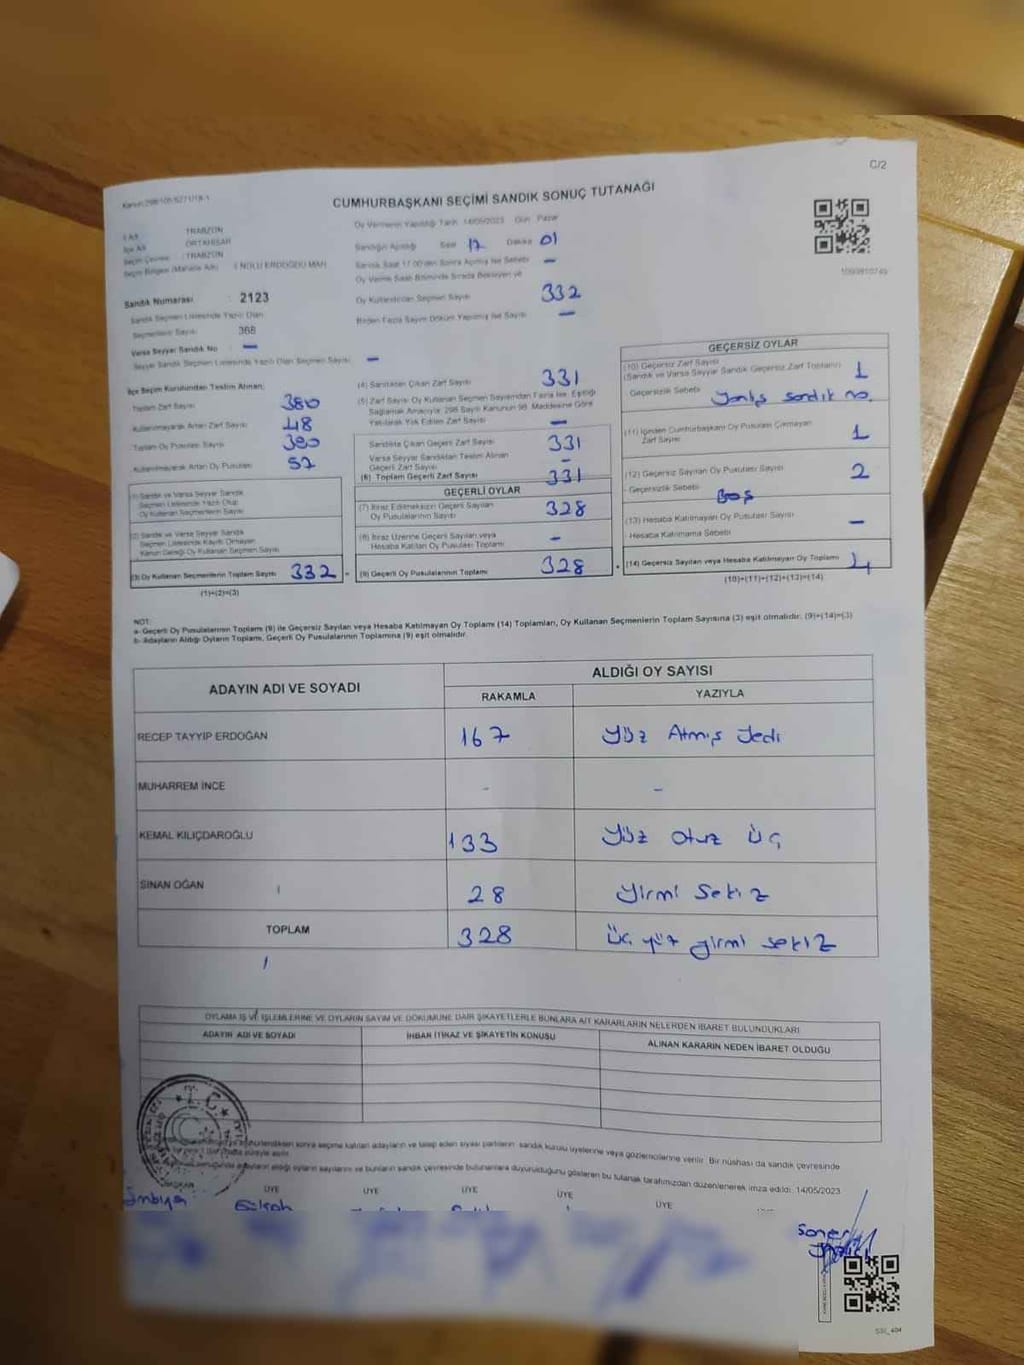 C/2
Kanun:298/105-6271/18-1
CUMHURBAŞKANI SEÇİMİ SANDIK SONUÇ TUTANAĞI
İl Adı TRABZON
İlçe Adı ORTAHİSAR
Seçim Çevresi : TRABZON
Seçim Bölgesi (Mahalle Adı) : 1 NOLU ERDOĞDU MAH.
Sandık Numarası : 2123
Sandık Seçmen Listesinde Yazılı Olan
Seçmenlerin Sayısı 368
Varsa Seyyar Sandık No –
Seyyar Sandık Seçmen Listesinde Yazılı Olan Seçmen Sayısı –
Oy Vermenin Yapıldığı Tarih 14/05/2023 Gün Pazar
Sandığın Açıldığı Saat 17 Dakika 01
Sandık Saat 17.00'den Sonra Açılmış İse Sebebi –
Oy Verme Saati Bitiminde Sırada Bekleyen ve
Oy Kullandırılan Seçmen Sayısı 332
Birden Fazla Sayım Döküm Yapılmış İse Sayısı –
1093810749
İlçe Seçim Kurulundan Teslim Alınan;
Toplam Zarf Sayısı 380
Kullanılmayarak Artan Zarf Sayısı 48
Toplam Oy Pusulası Sayısı 380
Kullanılmayarak Artan Oy Pusulası 52
(1) Sandık ve Varsa Seyyar Sandık
Seçmen Listesinde Yazılı Olup
Oy Kullanan Seçmenlerin Sayısı
(2) Sandık ve Varsa Seyyar Sandık
Seçmen Listesinde Kayıtlı Olmayan
Kanun Gereği Oy Kullanan Seçmen Sayısı
(3) Oy Kullanan Seçmenlerin Toplam Sayısı 332
(1)+(2)=(3)
(4) Sandıktan Çıkan Zarf Sayısı 331
(5) Zarf Sayısı Oy Kullanan Seçmen Sayısından Fazla İse, Eşitliği
Sağlamak Amacıyla, 298 Sayılı Kanunun 98. Maddesine Göre
Yakılarak Yok Edilen Zarf Sayısı –
Sandıkta Çıkan Geçerli Zarf Sayısı 331
Varsa Seyyar Sandıktan Teslim Alınan
Geçerli Zarf Sayısı –
(6) Toplam Geçerli Zarf Sayısı 331
GEÇERLİ OYLAR
(7) İtiraz Edilmeksizin Geçerli Sayılan
Oy Pusulalarının Sayısı 328
(8) İtiraz Üzerine Geçerli Sayılan veya
Hesaba Katılan Oy Pusulası Toplamı –
(9) Geçerli Oy Pusulalarının Toplamı 328
GEÇERSİZ OYLAR
(10) Geçersiz Zarf Sayısı
(Sandık ve Varsa Seyyar Sandık Geçersiz Zarf Toplamı) 1
Geçersizlik Sebebi Yanlış sandık no.
(11) İçinden Cumhurbaşkanı Oy Pusulası Çıkmayan
Zarf Sayısı 1
(12) Geçersiz Sayılan Oy Pusulası Sayısı 2
Geçersizlik Sebebi Boş
(13) Hesaba Katılmayan Oy Pusulası Sayısı –
Hesaba Katılmama Sebebi
(14) Geçersiz Sayılan veya Hesaba Katılmayan Oy Toplamı 4
(10)+(11)+(12)+(13)=(14)
NOT:
a- Geçerli Oy Pusulalarının Toplamı (9) ile Geçersiz Sayılan veya Hesaba Katılmayan Oy Toplamı (14) Toplamları, Oy Kullanan Seçmenlerin Toplam Sayısına (3) eşit olmalıdır. (9)+(14)=(3)
b- Adayların Aldığı Oyların Toplamı, Geçerli Oy Pusulalarının Toplamına (9) eşit olmalıdır.
ADAYIN ADI VE SOYADI
ALDIĞI OY SAYISI
RAKAMLA YAZIYLA
RECEP TAYYIP ERDOĞAN 167 Yüz Atmış Yedi
MUHARREM İNCE - -
KEMAL KILIÇDAROĞLU 133 Yüz Otuz Üç
SİNAN OĞAN 28 Yirmi Sekiz
TOPLAM 328 Üç yüz yirmi sekiz
OYLAMA İŞ VE İŞLEMLERİNE VE OYLARIN SAYIM VE DÖKÜMÜNE DAİR ŞİKAYETLERLE BUNLARA AİT KARARLARIN NELERDEN İBARET BULUNDUKLARI
ADAYIN ADI VE SOYADI İHBAR İTİRAZ VE ŞİKAYETİN KONUSU ALINAN KARARIN NEDEN İBARET OLDUĞU
T.C.
sonra seçime katılan adayların ve talep eden siyasi partilerin sandık kurulu üyelerine veya gözlemcilerine verilir. Bir nüshası da sandık çevresinde
adayların aldığı oyların sayılarını ve bunların sandık çevresinde bulunanlara duyurulduğunu gösteren bu tutanak tarafımızdan düzenlenerek imza edildi. 14/05/2023
BAŞKAN ÜYE ÜYE ÜYE ÜYE ÜYE
Soner
SSI_404